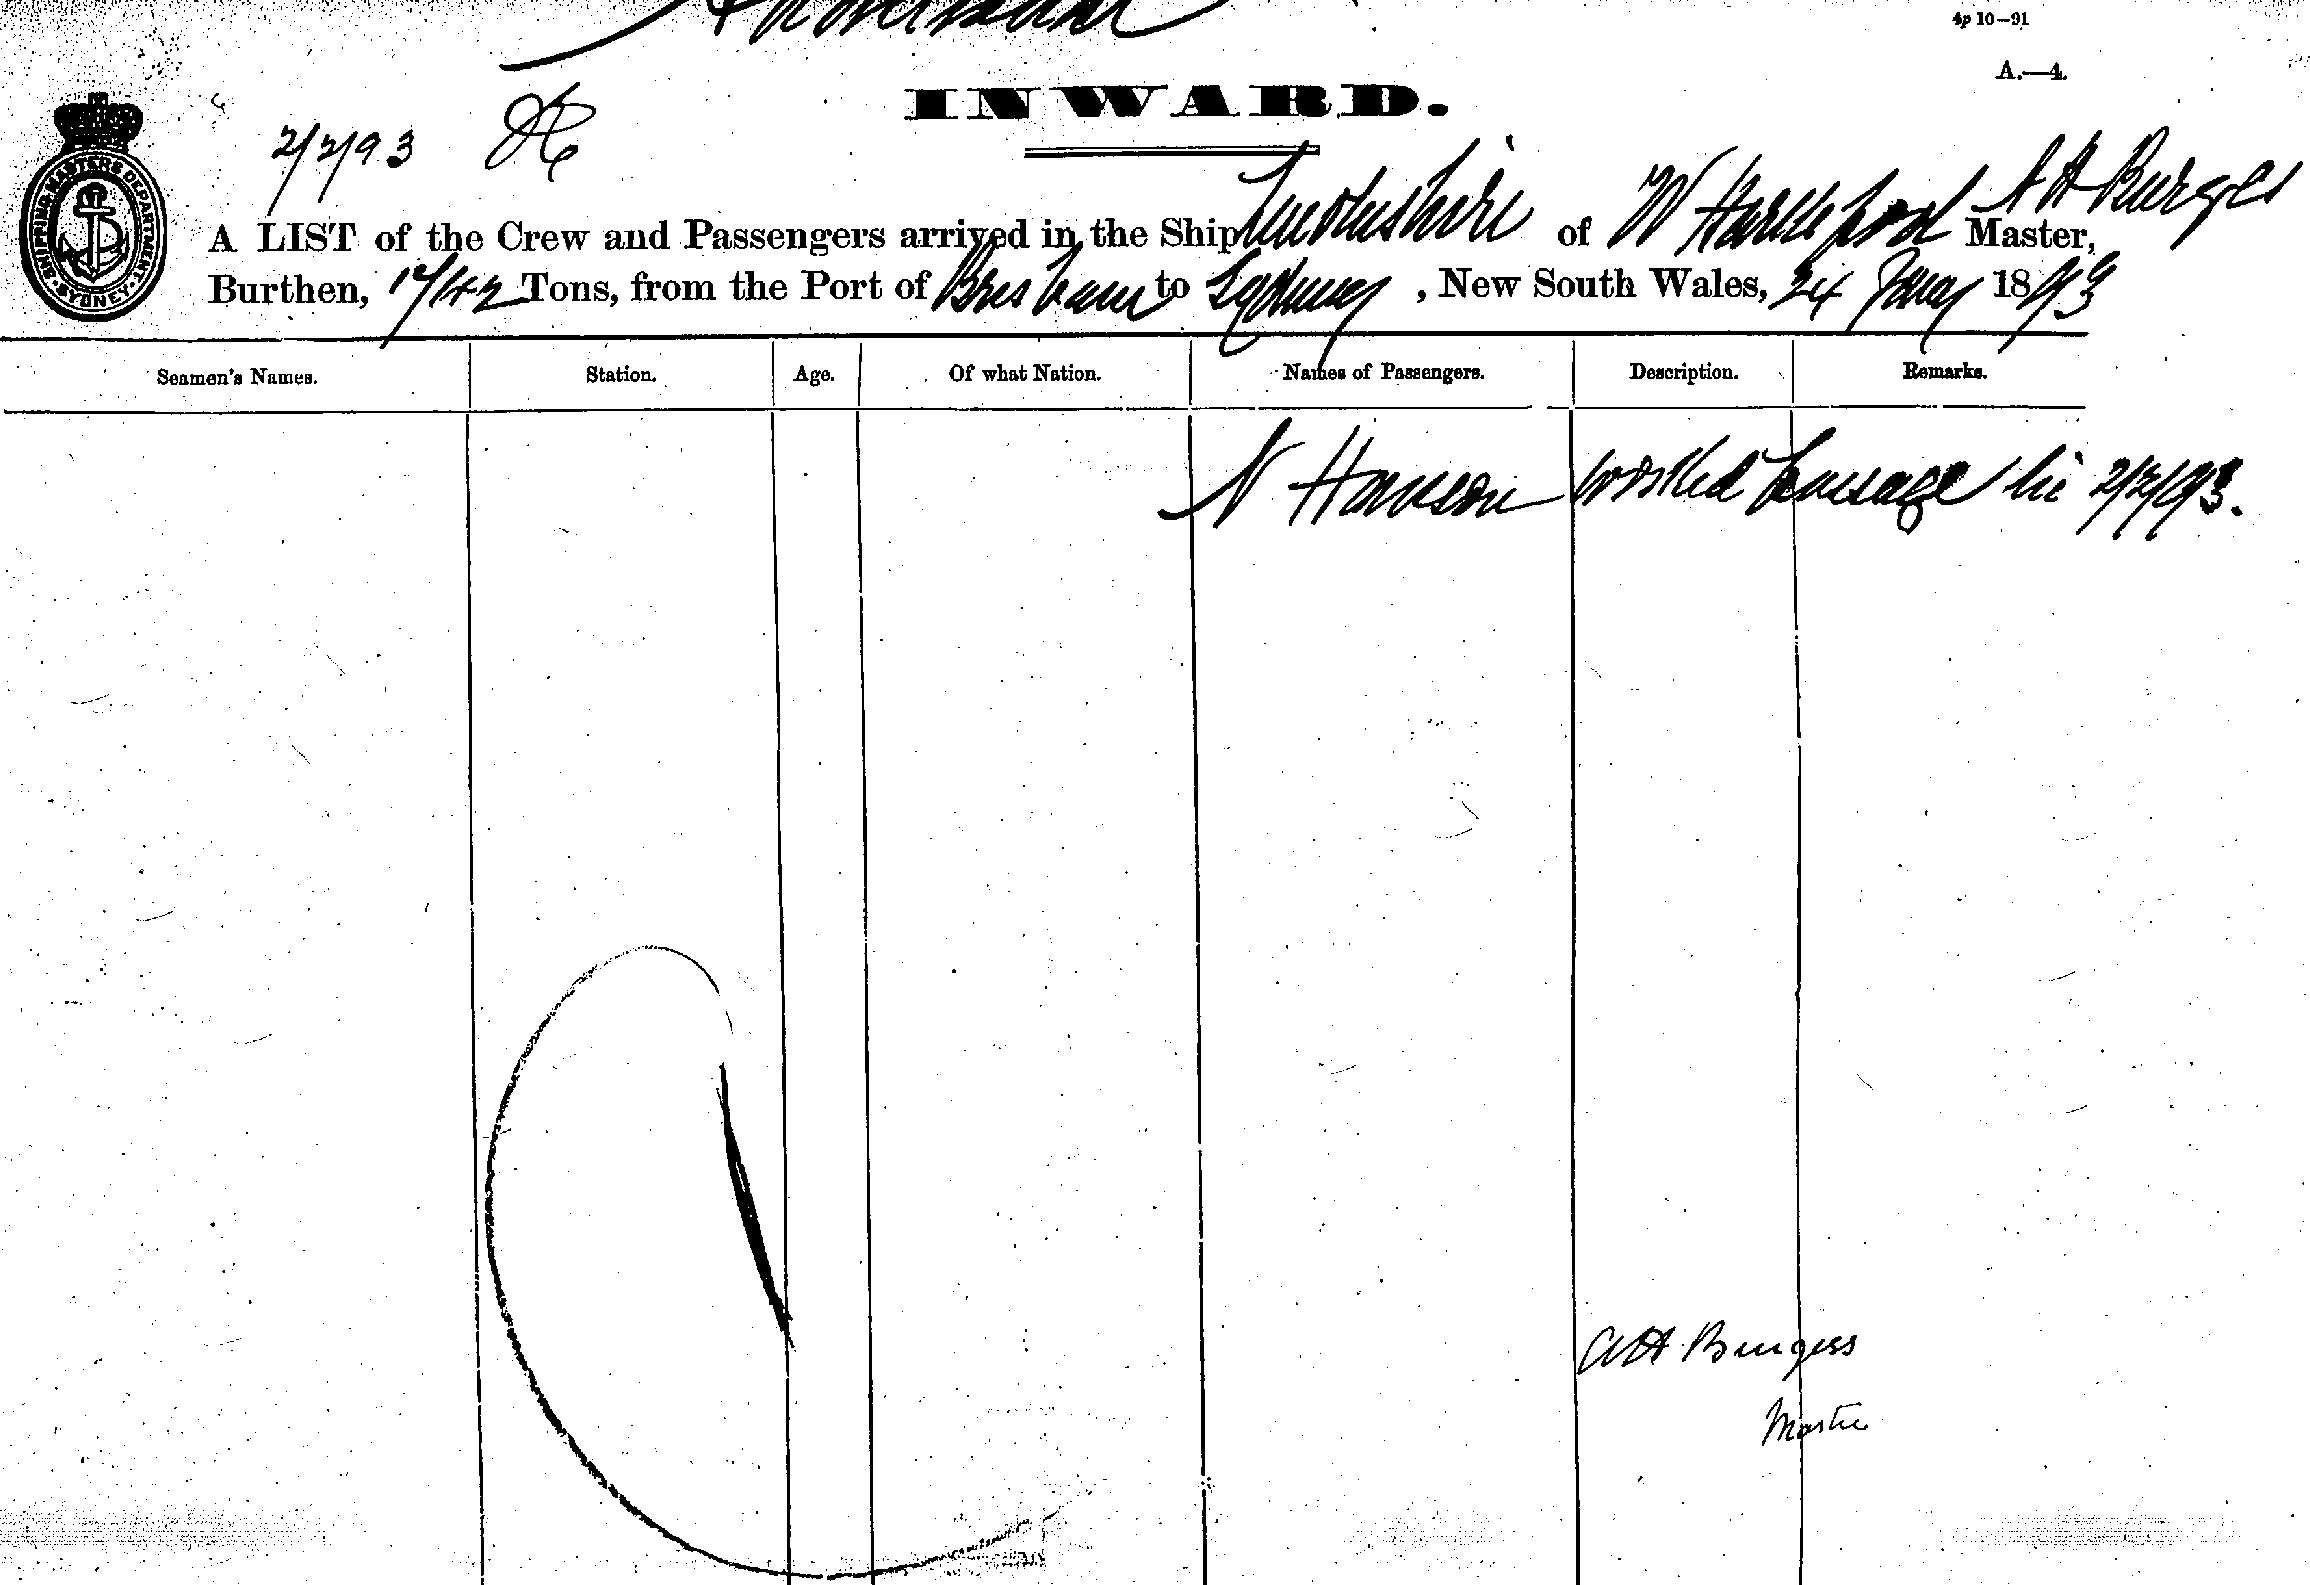 4p 10—91
A.—4.
INWARD.
2/2/93
SHIPPING MASTERS DEPARTMENT. SYDNEY.
A LIST of the Crew and Passengers arrived in the Ship Lincolnshire of W Hartlepool A H Burges Master,
Burthen, 1742 Tons, from the Port of Brisbane to Sydney, New South Wales, 24 Jany 1893
Seamen's Names. Station. Age. Of what Nation. Names of Passengers. Description. Remarks.
N Hanson worked passage 2/2/93.
AH Burgess
Master